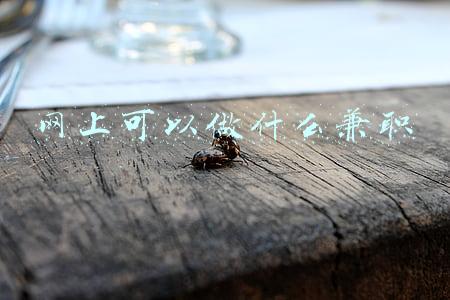 网上可以做什么兼职